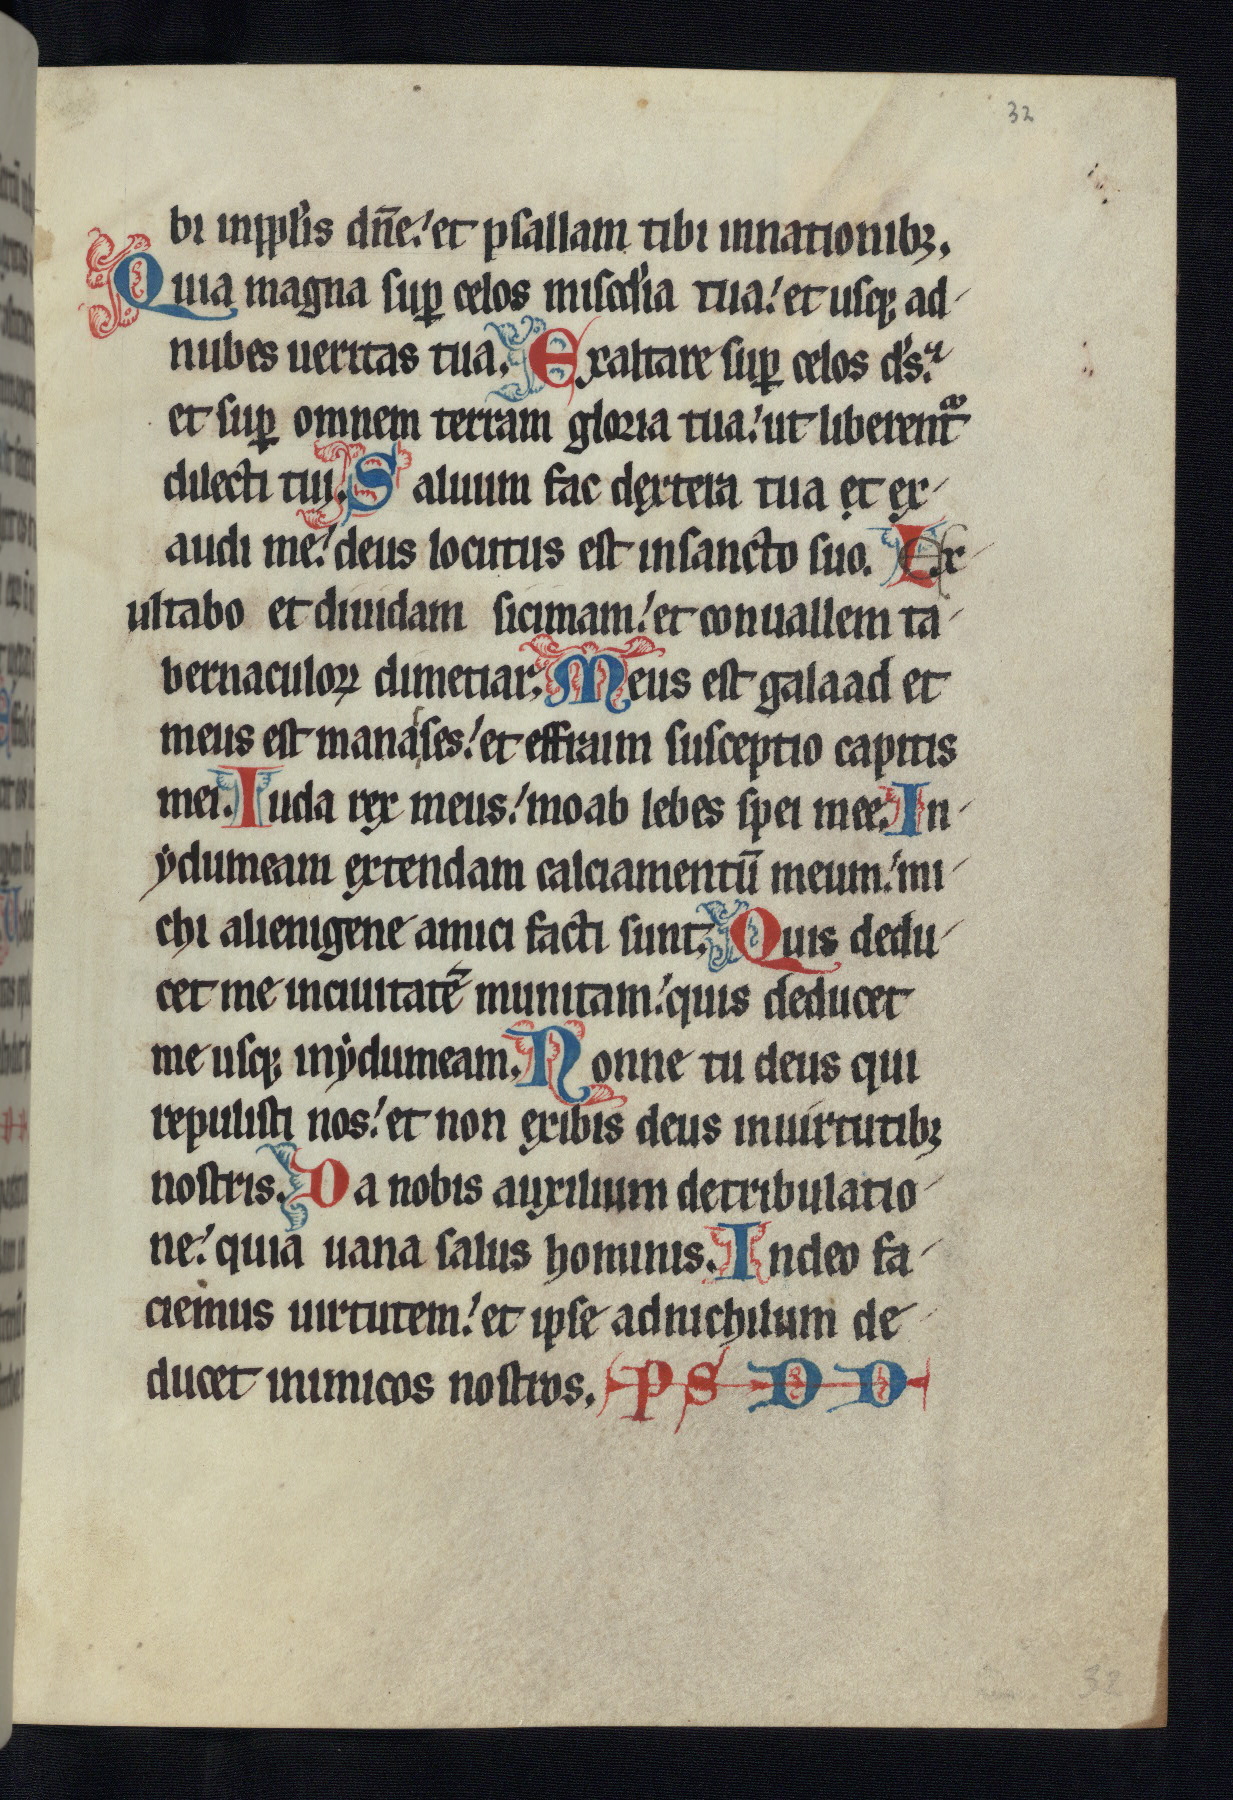 32
bi inpplis dñe. et psallam tibi innationibꝫ.
Quia magna suꝑ celos miscd'ia tua. et usqꝫ ad
nubes ueritas tua. Exaltare suꝑ celos d's.
et suꝑ omnem terram gloria tua. ut liberent᷑
dilecti tui. Saluum fac dextera tua et ex
audi me. deus locutus est insancto suo. Ex
ultabo et diuidam sicimam. et conuallem ta
bernaculoꝝ dimetiar. Meus est galaad et
meus est manasses. et effraim susceptio capitis
mei. Iuda rex meus. moab lebes spei mee. In
ẏdumeam extendam calciamentū meum. mi
chi alienigene amici facti sunt. Quis dedu
cet me inciuitatē munitam. quis deducet
me usqꝫ inẏdumeam. Nonne tu deus qui
repulisti nos. et non exibis deus inuirtutibꝫ
nostris. Da nobis auxilium detribulatio
ne. quia uana salus hominis. Indeo fa
ciemus uirtutem. et ipse adnichilum de
ducet inimicos nostros. P S D D
32